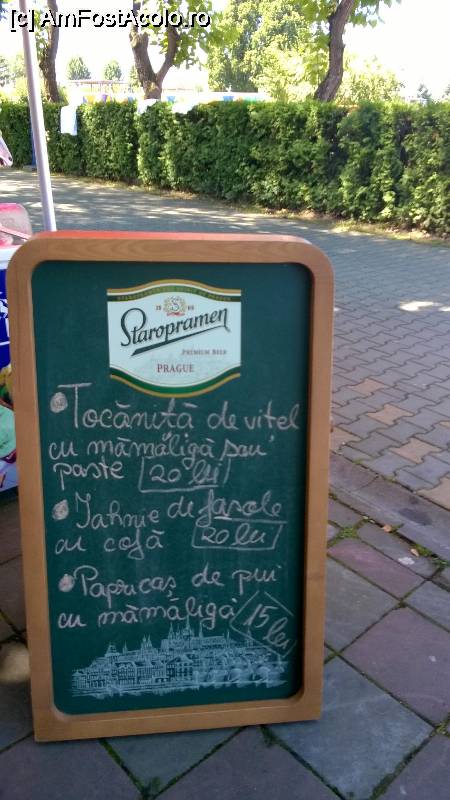 [c] AmFostAcolo.ro
Staropramen
PREMIUM BEER
PRAGUE
Tocăniță de vițel
cu mămăligă sau
paste 20 lei
Iahnie de fasole
cu cofă 20 lei
Papricaș de pui
cu mămăligă 15 lei